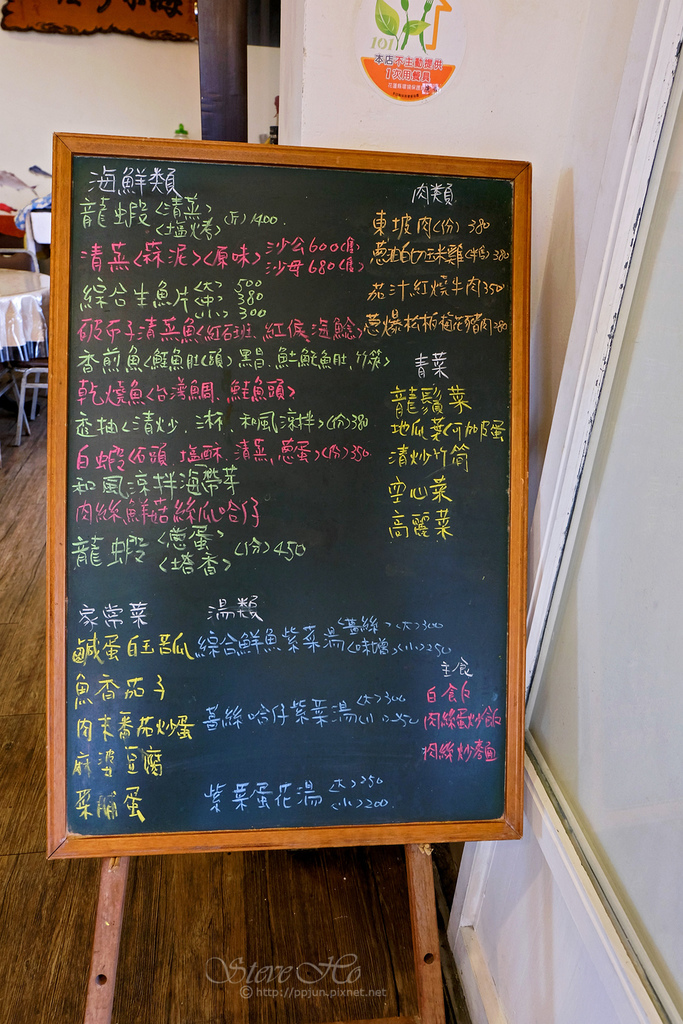 101
本店不主動提供
1次用餐具
海鮮類
龍蝦<清蒸>
<塩烤> (斤) 1400.
清蒸<蒜泥><原味> 沙公600(隻)
沙母680(隻)
綜合生魚片 <大> 500
<中> 380
<小> 300
破布子清蒸魚<紅石班、紅條、海鱺>
香煎魚<鮭魚肚(頭)、黑昌、虱目魚肚、竹筴>
乾燒魚<台灣鯛、鮭魚頭>
透抽<清炒、三杯、和風涼拌>(份)380
白蝦<石頭、塩酥、清蒸、蔥蛋>(份)350
和風涼拌海帶芽
肉絲鮮菇絲瓜哈仔
龍蝦<蔥蛋>
<塔香> (份) 450
肉類
東坡肉(份) 380
蔥油白切玉米雞(半隻)380
茄汁紅燒牛肉350
蔥爆松板梅花豬肉280
青菜
龍鬚菜
地瓜葉(可加皮蛋
清炒竹筍
空心菜
高麗菜
家常菜
鹹蛋白玉苦瓜
魚香茄子
肉末番茄炒蛋
麻婆豆腐
菜脯蛋
湯類
綜合鮮魚紫菜湯<薑絲><大>300
<味噌><小>250
薑絲哈仔紫菜湯<大>300
<小>250
紫菜蛋花湯<大>250
<小>200.
主食
白飯
肉絲蛋炒飯
肉絲炒麵
Steve Ho
© http://ppjun.pixnet.net